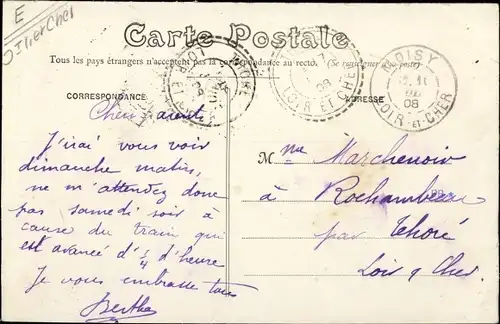 E
Loir et Cher
Carte Postale
Tous les pays étrangers n'acceptent pas la correspondance au recto. (Se renseigner à la poste)
CORRESPONDANCE
ADRESSE
MOISY
08
LOIR-et-CHER
LOIR ET CHER
08
Chers parents
J'irai vous voir
dimanche matin,
ne m'attendez donc
pas samedi soir à
cause du train qui
est avancé d'¼ d'heure
Je vous embrasse tous
Berthe
Mme Marchenoir
à Rochambeau
par Thoré
Loir & Cher